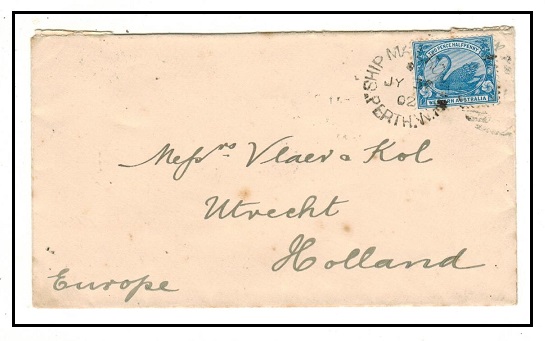 TWO PENCE HALFPENNY
WESTERN AUSTRALIA
SHIP MA
JY
02
PERTH.W.A
Messrs Vlaer & Kol
Utrecht
Holland
Europe